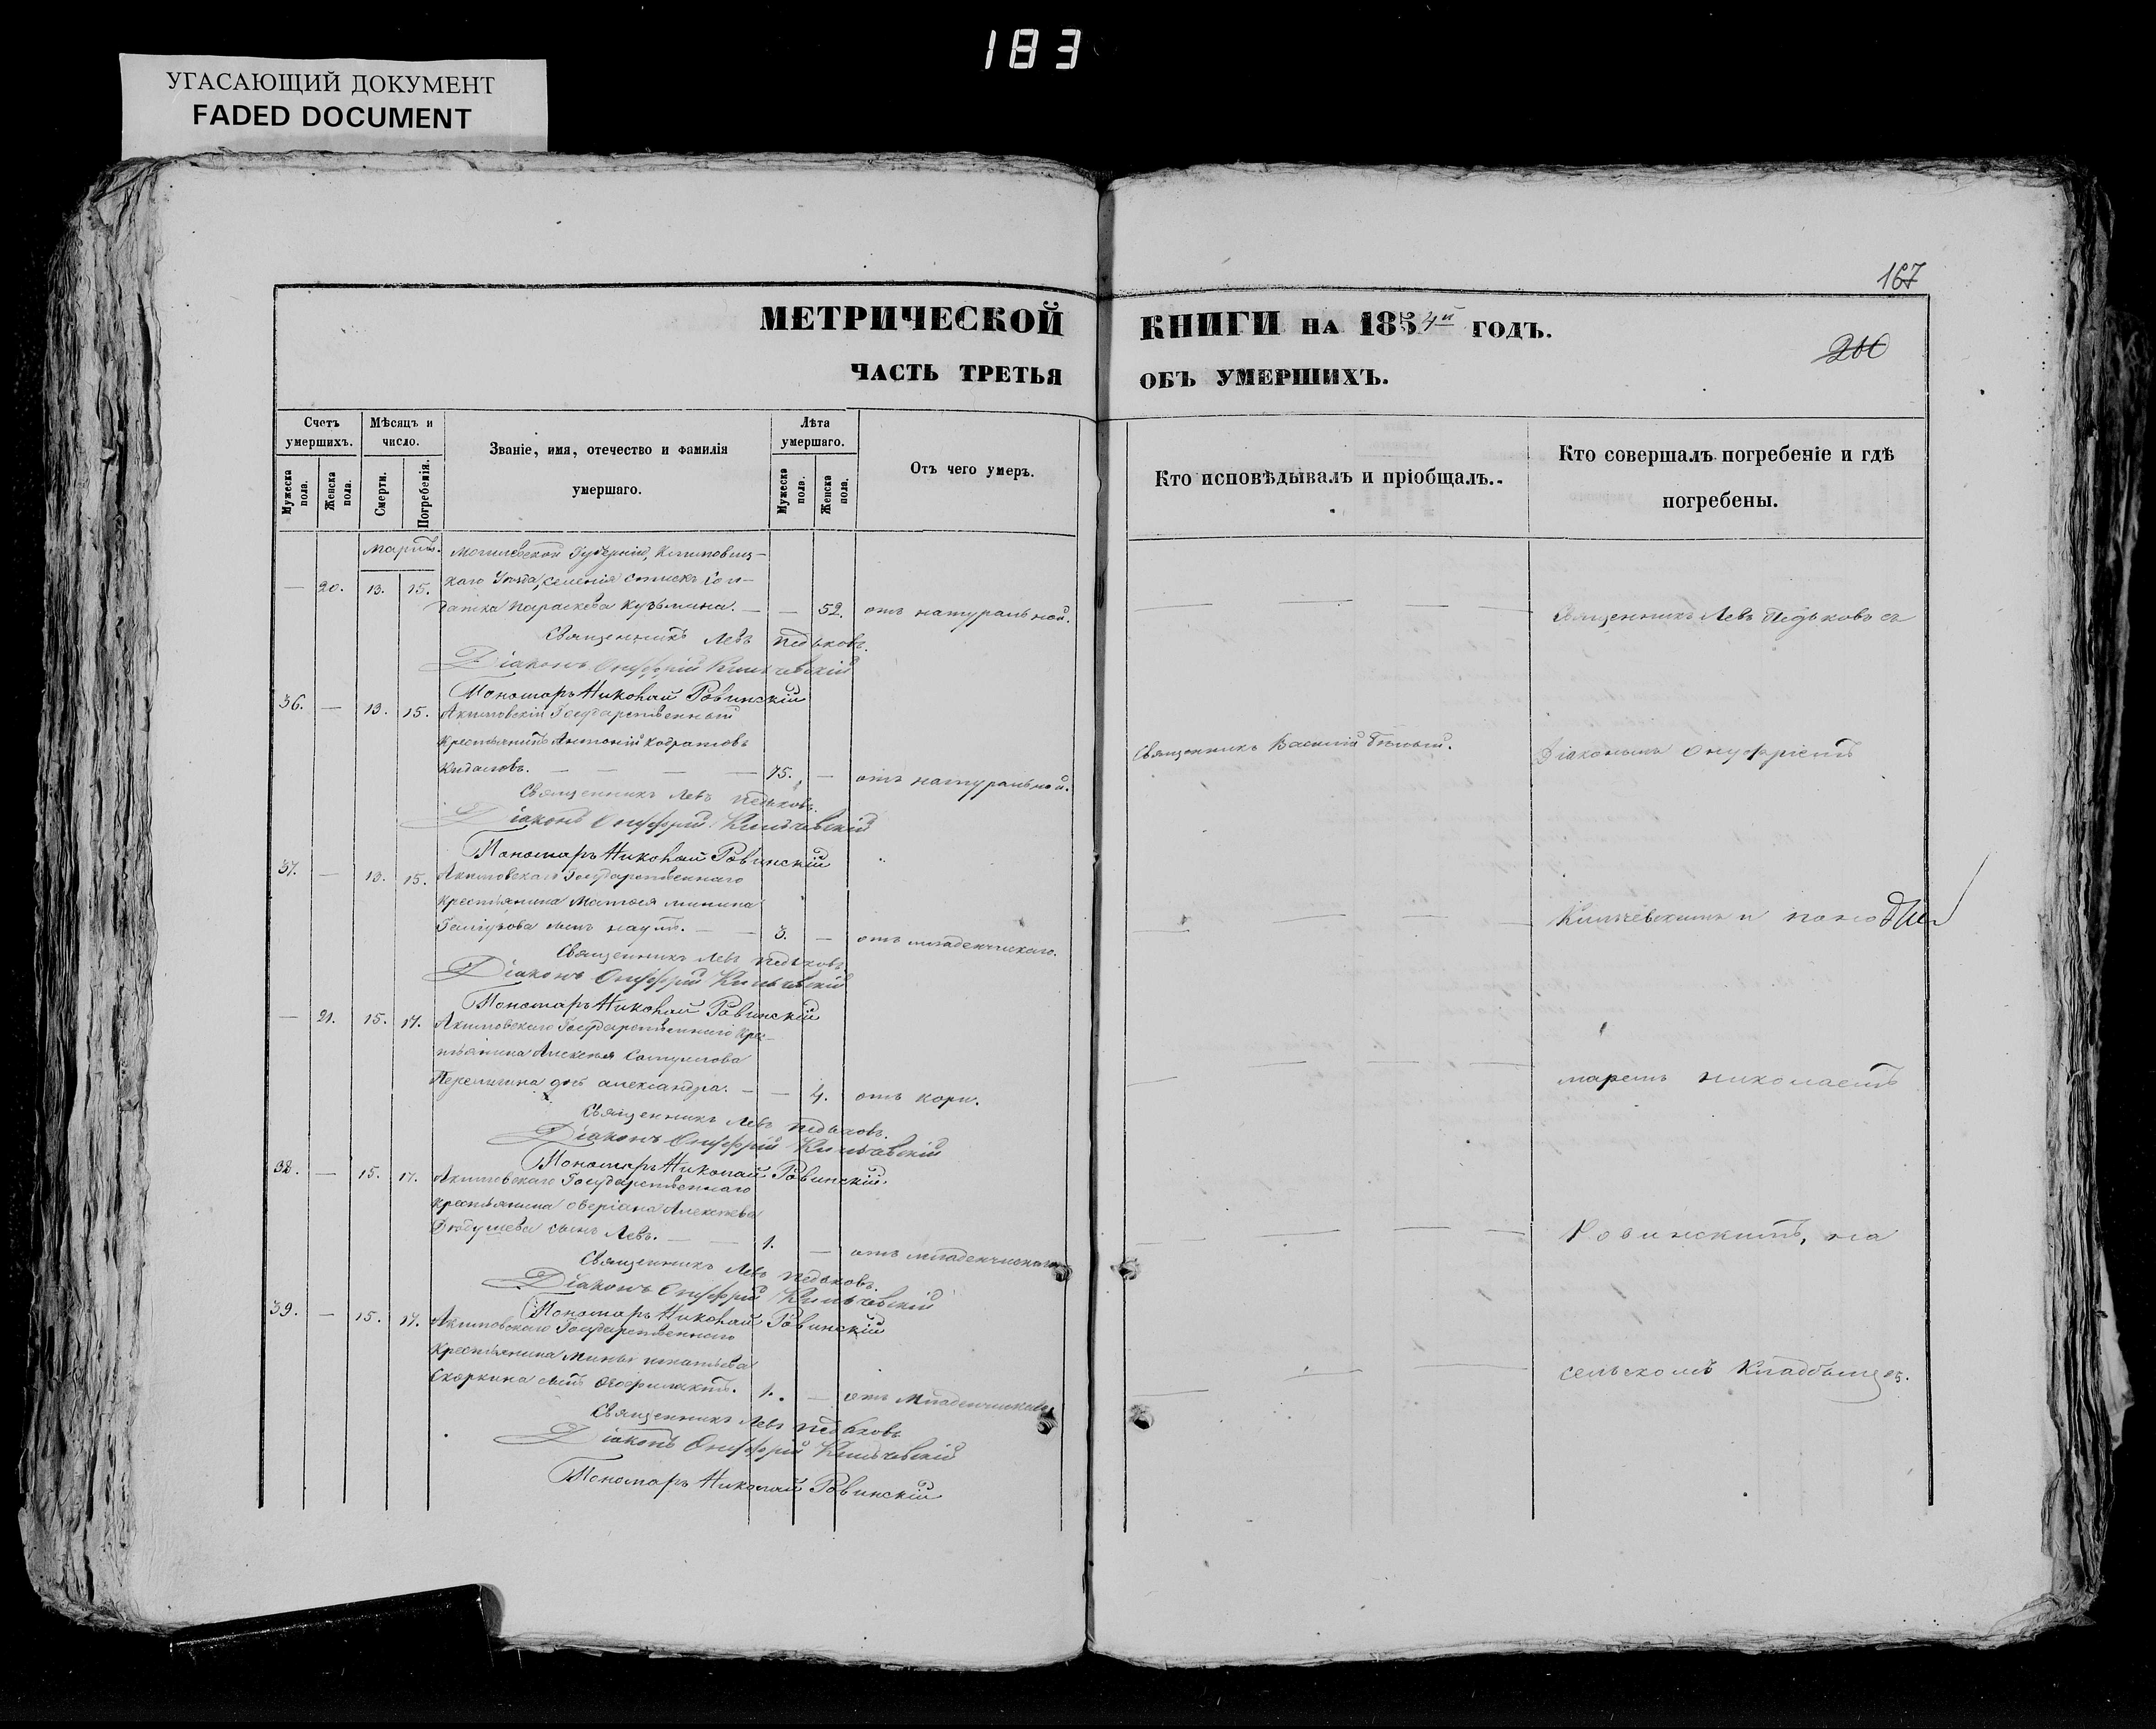 183
УГАСАЮЩИЙ ДОКУМЕНТ
FADED DOCUMENT
167
МЕТРИЧЕСКОЙ КНИГИ НА 1854й ГОДЪ.
200
ЧАСТЬ ТРЕТЬЯ ОБЪ УМЕРШИХЪ.
Счетъ умершихъ.
Мужеска пола.
Женска пола.
Мѣсяцъ и число.
Смерти.
Погребенія.
Званіе, имя, отечество и фамилія умершаго.
Лѣта умершаго.
Мужеска пола.
Женска пола.
Отъ чего умеръ.
Кто исповѣдывалъ и пріобщалъ.
Кто совершалъ погребеніе и гдѣ погребены.
Мартъ. Могилевской Губерніи, Климовиц-
— 20. 13. 15. каго Уѣзда, селенія сол-
датка Параскева Кузьмина. — — 52. отъ натуральной. Священникъ Левъ Педьковъ съ
Священникъ Левъ Педьковъ.
Діаконъ Онуфрій Кильчевскій
Пономарь Николай Ровинскій
36. — 13. 15. Акимовскій Государственный
крестьянинъ Антоній Кодратовъ Священникъ Василій Діакономъ Онуфріемъ
75. — отъ натуральной.
Священникъ Левъ Педьковъ.
Діаконъ Онуфрій Кильчевскій
Пономарь Николай Ровинскій
37. — 13. 15. Акимовскаго Государственнаго
крестьянина Матвея Минина
сынъ Наумъ. — 3. — отъ младенческаго. Кильчевскимъ и поно
Священникъ Левъ Педьковъ
Діаконъ Онуфрій Кильчевскій
Пономарь Николай Ровинскій
— 21. 15. 17. Акимовскаго Государственнаго крес-
тьянина Алексея
дочь Александра. — — 4. отъ кори. маремъ Николаемъ
Священникъ Левъ Педьковъ.
Діаконъ Онуфрій Кильчевскій
Пономарь Николай Ровинскій
38. — 15. 17. Акимовскаго Государственнаго
крестьянина Аверіана Алексѣева
сынъ Левъ. — 1. — отъ младенческаго Ровинскимъ, на
Священникъ Левъ Педьковъ.
Діаконъ Онуфрій Кильчевскій
Пономарь Николай Ровинскій
39. — 15. 17. Акимовскаго Государственнаго
Крестьянина Мины Игнатьева
Скоркина сынъ Феофилактъ. 1. — отъ Младенческаго сельскомъ Кладбыще.
Священникъ Левъ Педьковъ
Діаконъ Онуфрій Кильчевскій
Пономарь Николай Ровинскій